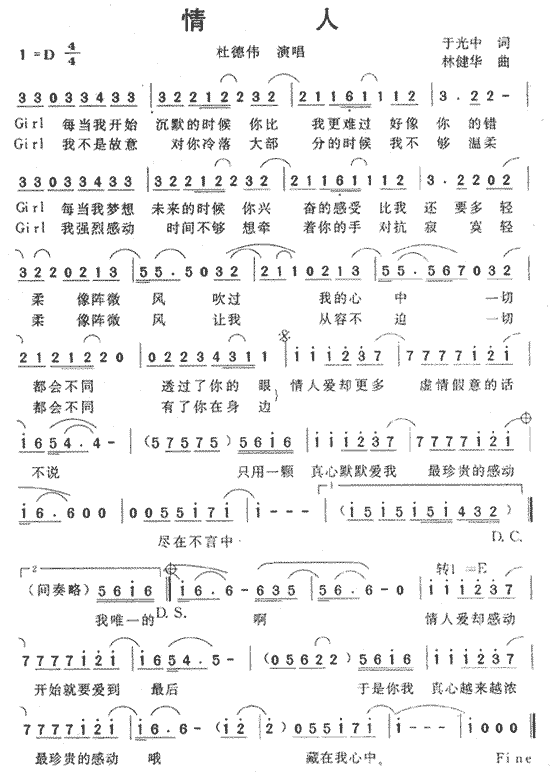 情 人
1=D 4/4 杜德伟 演唱 于光中 词
林健华 曲
33033433 | 32212232 | 21161112 | 3.22- |
Girl 每当我开始 沉默的时候 你比 我更难过 好像 你 的错
Girl 我不是故意 对你冷落 大部 分的时候 我不 够 温柔
33033433 | 32212232 | 21161112 | 3.2202 |
Girl 每当我梦想 未来的时候 你兴 奋的感受 比我 还 要多 轻
Girl 我强烈感动 时间不够 想牵 着你的手 对抗 寂 寞轻
3220213 | 55.5032 | 2110213 | 55.567032 |
柔 像阵微 风 吹过 我的心 中 一切
柔 像阵微 风 让我 从容不 迫 一切
2121220 | 02234311 | i i i 2 3 7 | 7777i2i |
都会不同 透过了你的 眼 情人爱却更多 虚情假意的话
都会不同 有了你在身 边
i654.4- | (57575) 56i6 | i i i 2 3 7 | 7777i2i |
不说 只用一颗 真心默默爱我 最珍贵的感动
i6.600 | 0055i7i | i--- | (i5i5i5i432) |
尽在不言中 D.C.
(间奏略) 56i6 | i6.6-635 | 56.6-0 | 转1=E i i i 2 3 7 |
我唯一的 D.S. 啊 情人爱却感动
7777i2i | i654.5- | (05622) 56i6 | i i i 2 3 7 |
开始就要爱到 最后 于是你我 真心越来越浓
7777i2i | i6.6-(i2 | 2)055i7i | i--- | i000 |
最珍贵的感动 哦 藏在我心中。 Fine